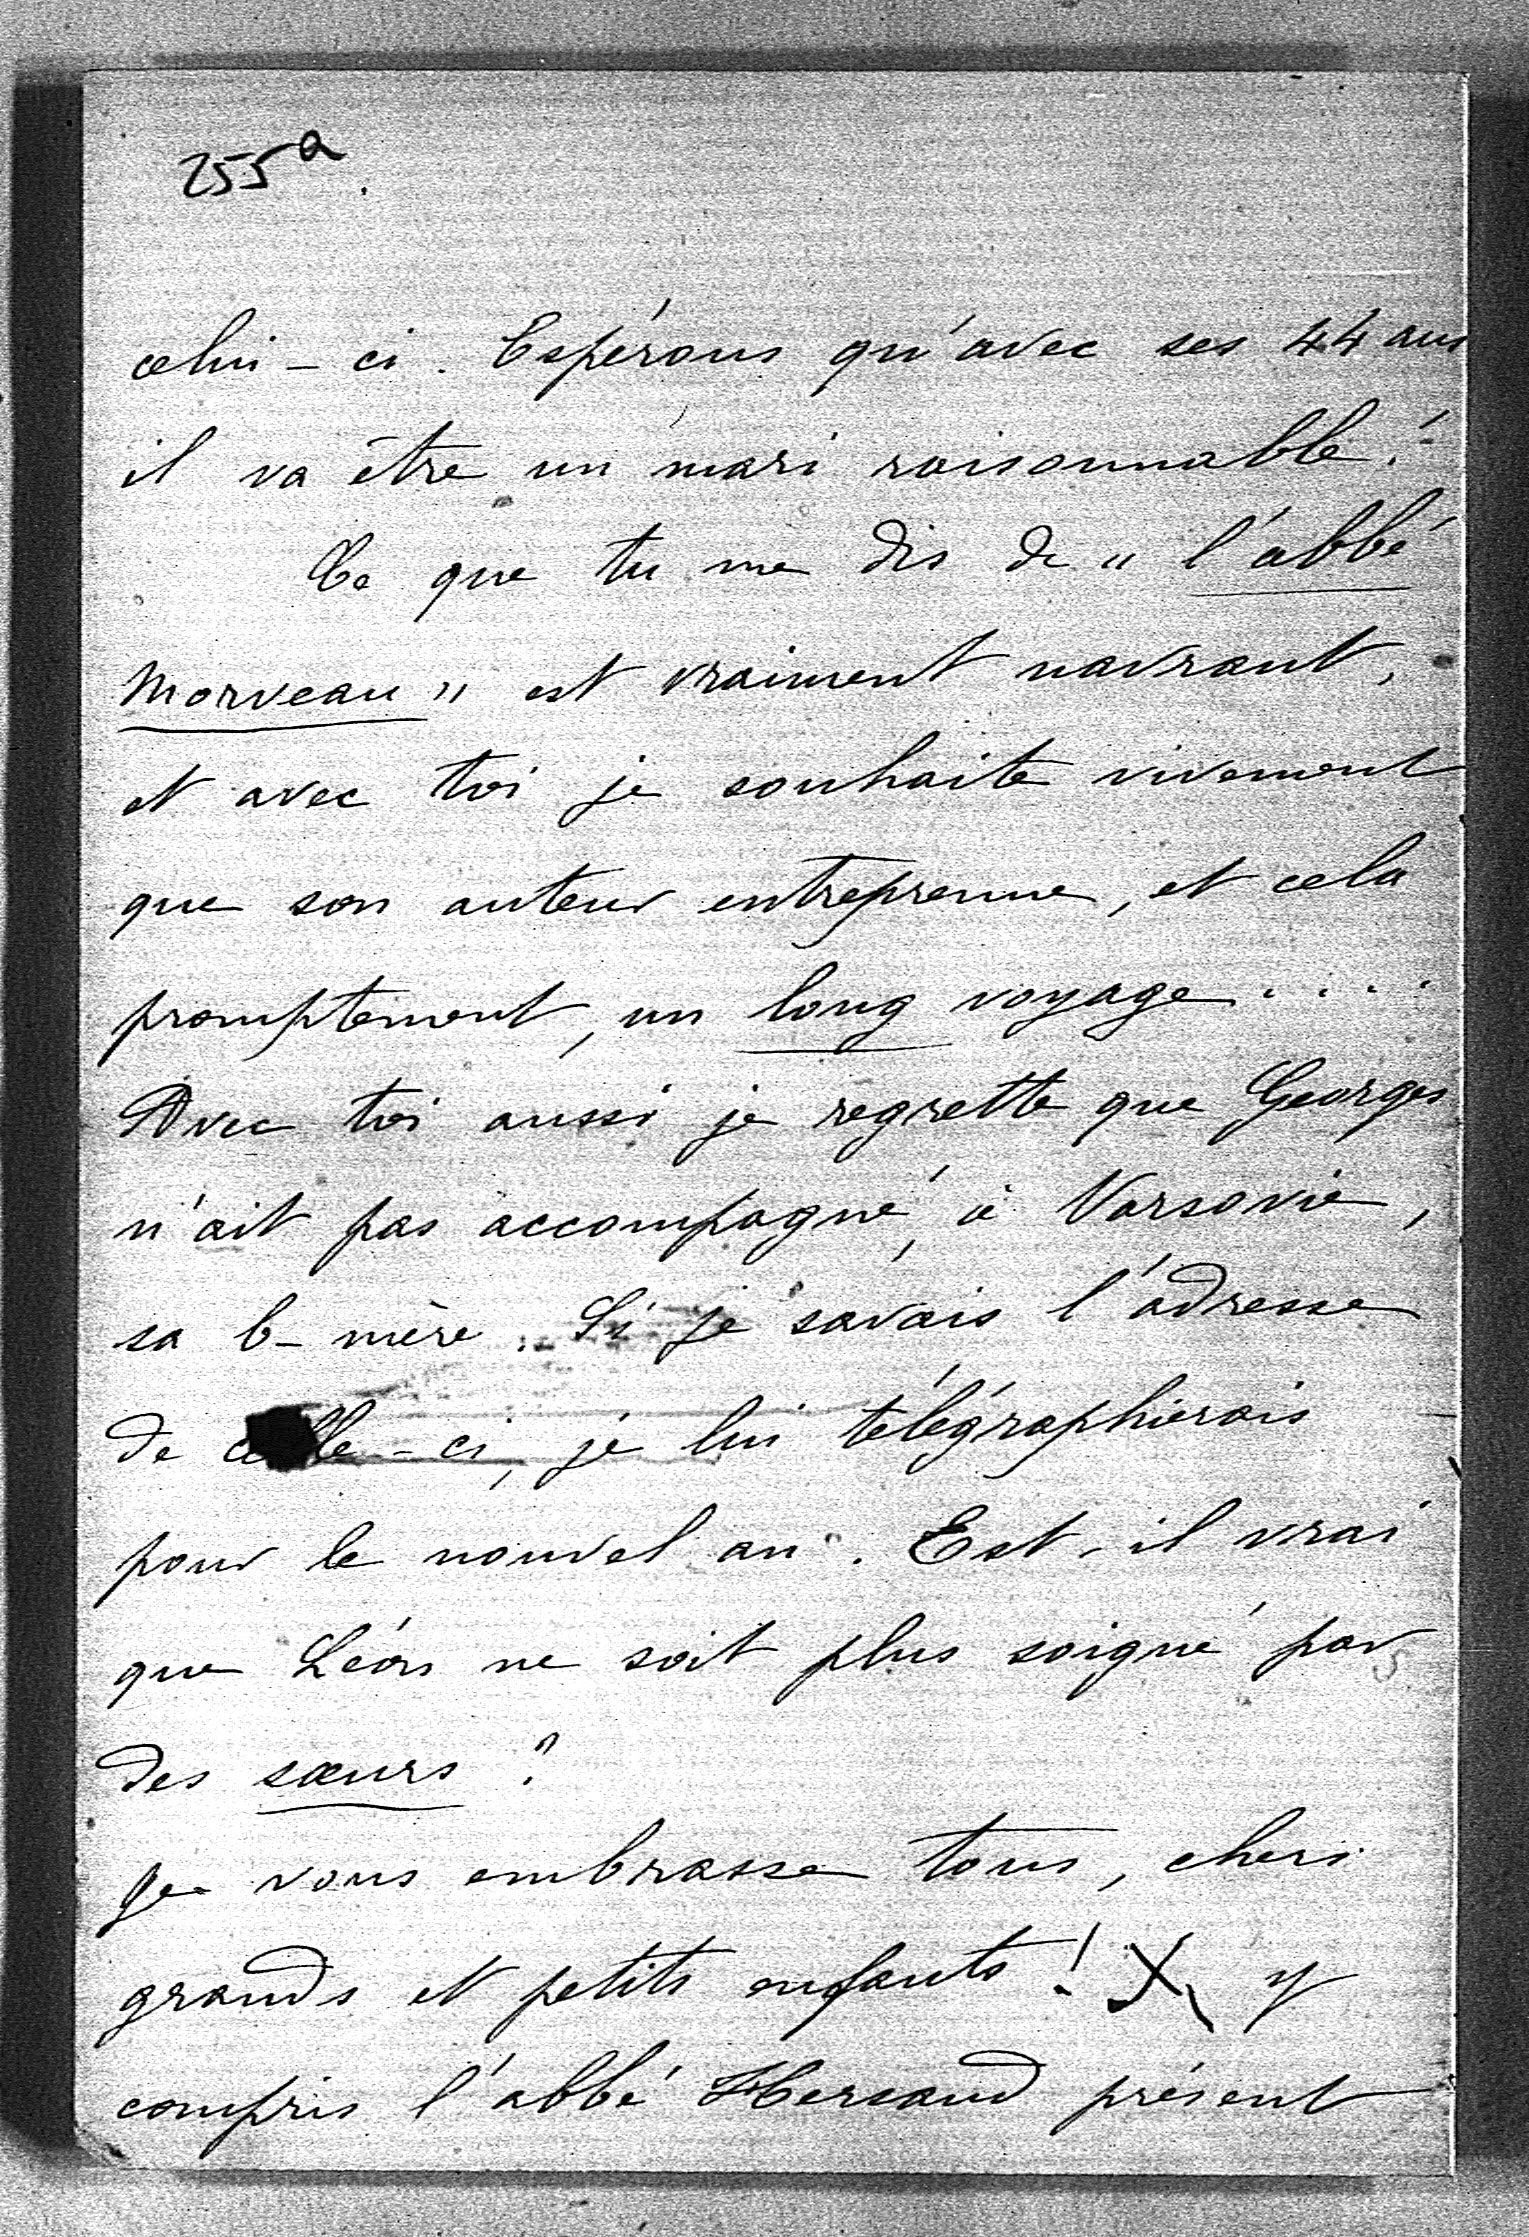 255a.
celui-ci. Espérons qu'avec ses 44 ans
il va être un mari raisonnable !
Ce que tu me dis de "l'abbé
Morveau" est vraiment navrant,
et avec toi je souhaite vivement
que son auteur entreprenne, et cela
promptement, un long voyage....
Avec toi aussi je regrette que Georges
n'ait pas accompagné, à Varsovie,
sa b-mère. Si je savais l'adresse
de celle-ci, je lui télégraphierais
pour le nouvel an. Est-il vrai
que Léon ne soit plus soigné par
des sœurs ?
Je vous embrasse tous, chers
grands et petits enfants ! X y
compris l'abbé présent